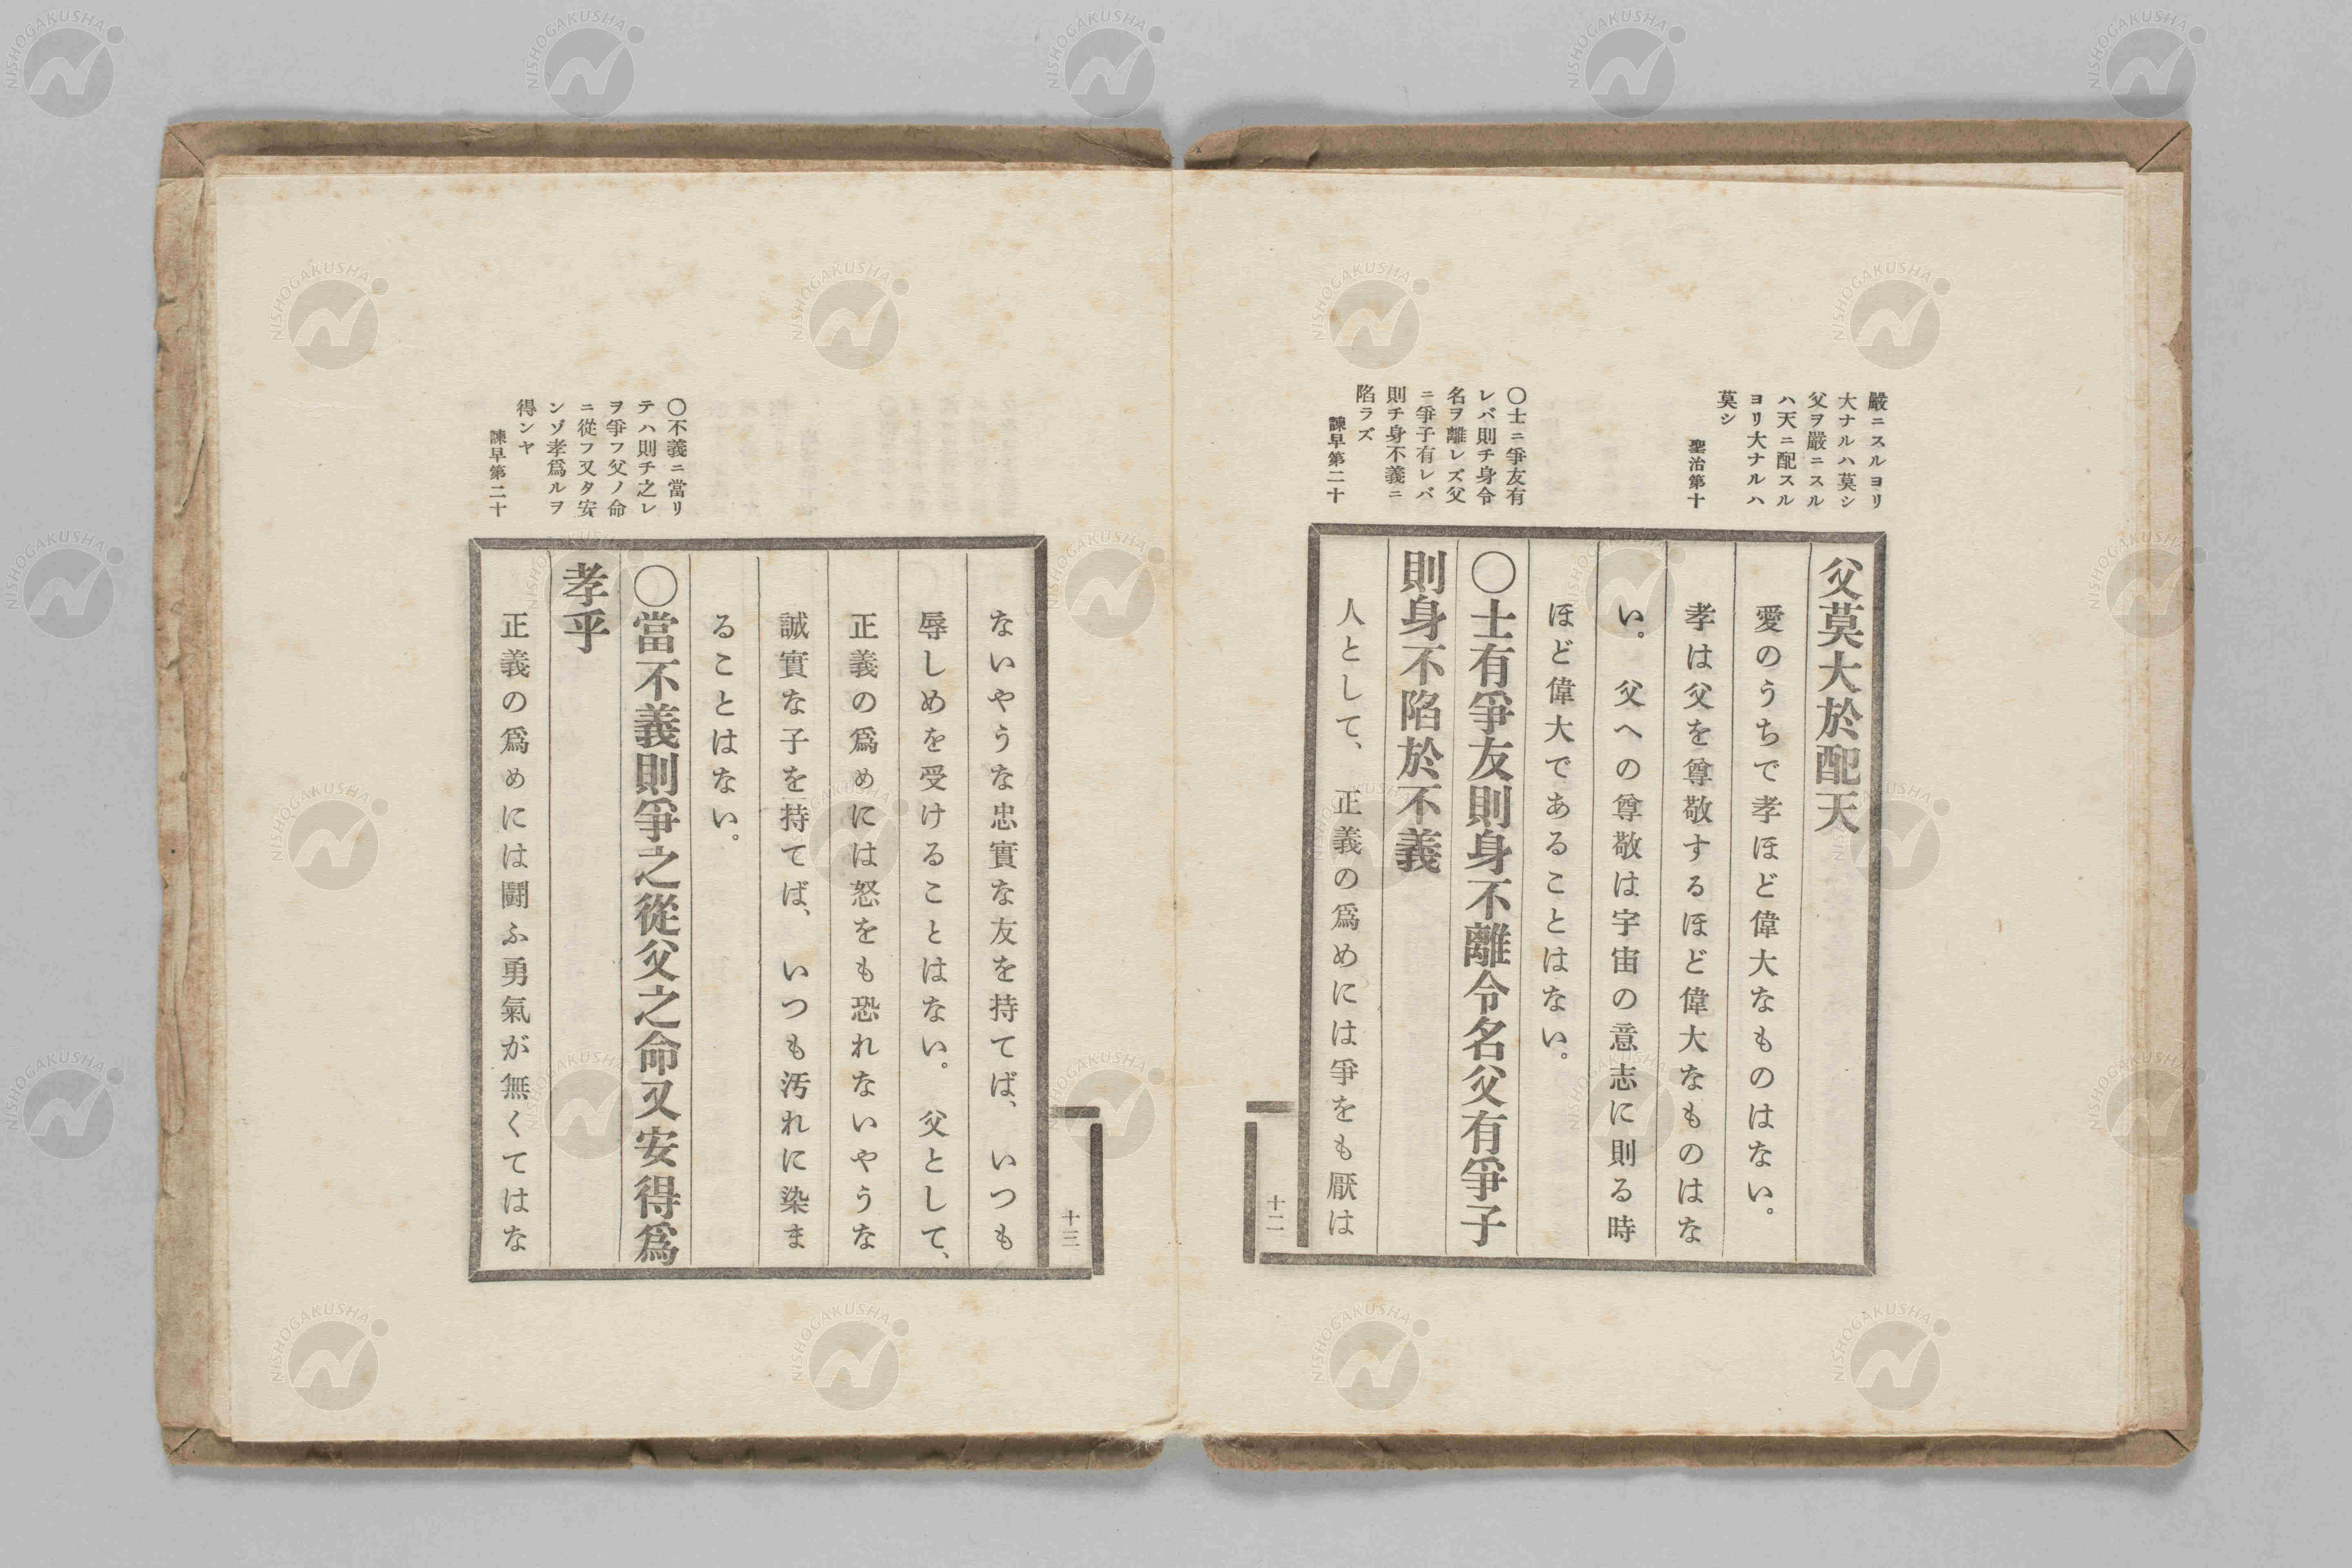 嚴ニスルヨリ
大ナルハ莫シ
父ヲ嚴ニスル
ハ天ニ配スル
ヨリ大ナルハ
莫シ
聖治第十
父莫大於配天
愛のうちで孝ほど偉大なものはない。
孝は父を尊敬するほど偉大なものはな
い。父への尊敬は宇宙の意志に則る時
ほど偉大であることはない。
〇士ニ爭友有
レバ則チ身令
名ヲ離レズ父
ニ爭子有レバ
則チ身不義ニ
陷ラズ
諫早第二十
〇士有爭友則身不離令名父有爭子
則身不陷於不義
人として、正義の爲めには爭をも厭は
十二
ないやうな忠實な友を持てば、いつも
辱しめを受けることはない。父として、
正義の爲めには怒をも恐れないやうな
誠實な子を持てば、いつも汚れに染ま
ることはない。
〇不義ニ當リ
テハ則チ之レ
ヲ爭フ父ノ命
ニ從フ又タ安
ンゾ孝爲ルヲ
得ンヤ
諫早第二十
〇當不義則爭之從父之命又安得爲
孝乎
正義の爲めには鬪ふ勇氣が無くてはな
十三
NISHOGAKUSHA